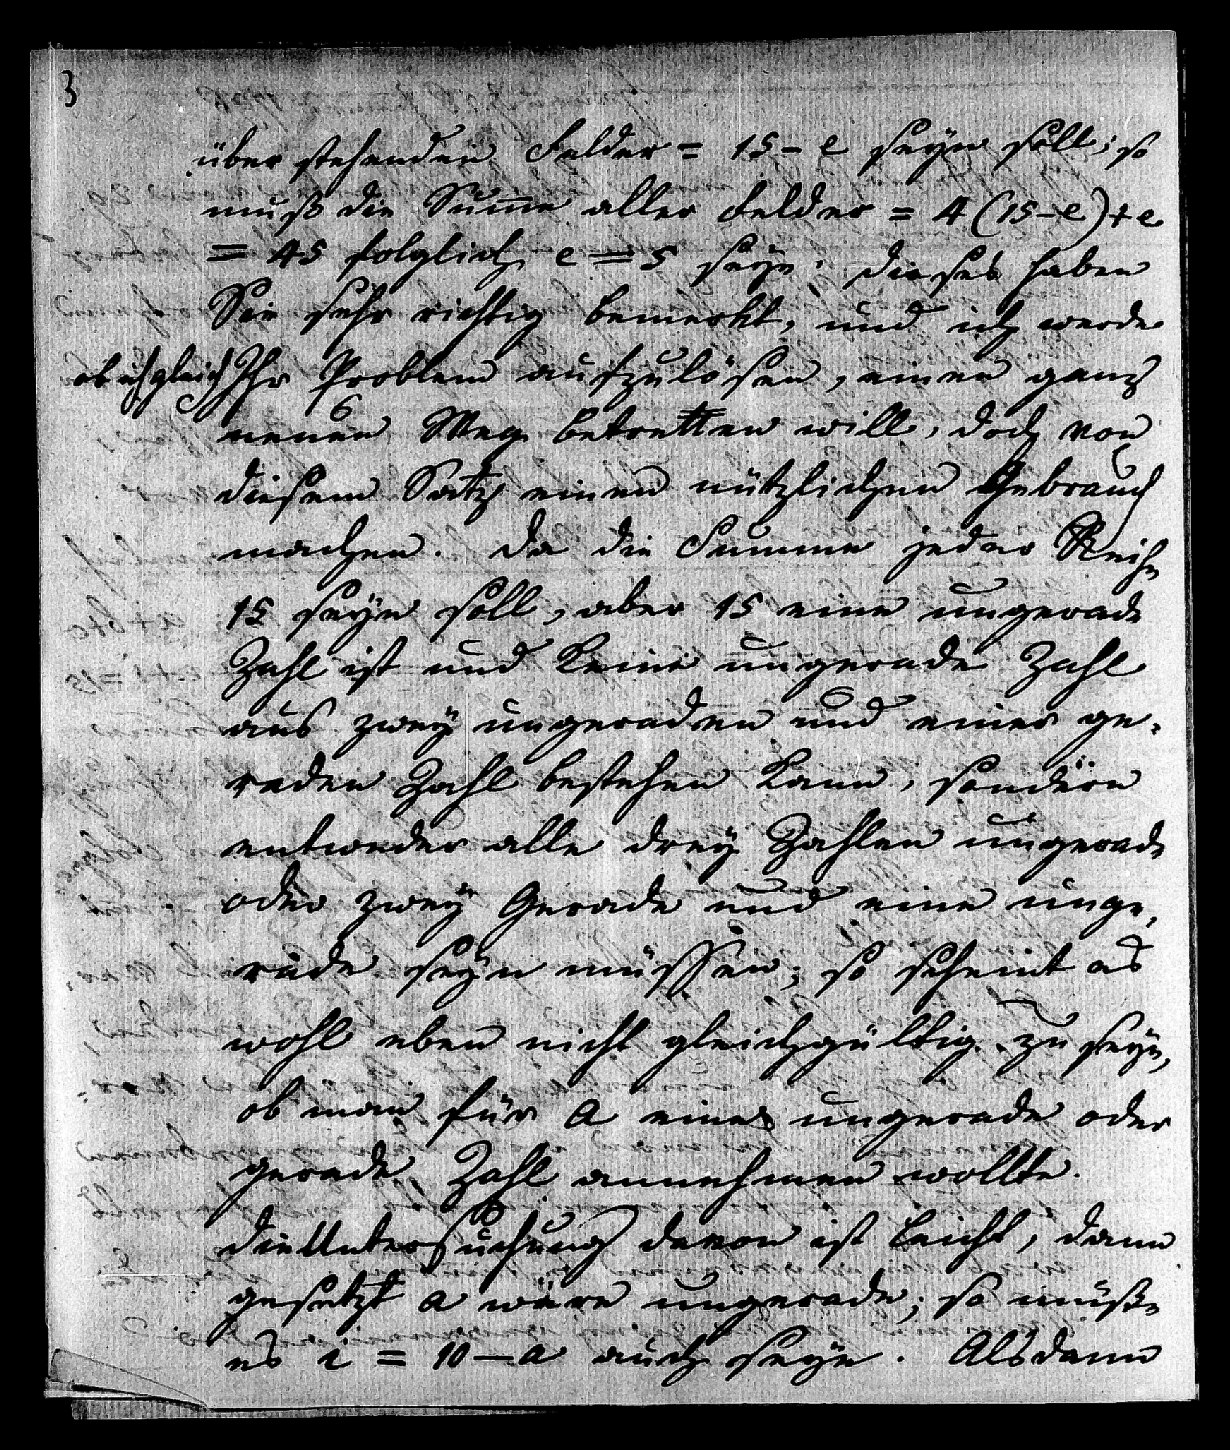 3
über stehenden Felder = 15 - e seyn soll; so
muß die Summe aller Felder = 4 (15 - e) + e
= 45 folglich e = 5 seyn. dieses haben
Sie sehr richtig bemerkt, und ich werde
ob ich gleich Ihr Problem aufzulösen, einen ganz
neuen Weg betretten will, doch von
diesem Satz einen nützlichen Gebrauch
machen. Da die Summe jeder Reihe
15 seyn soll, aber 15 eine ungerade
Zahl ist und keine ungerade Zahl
aus zwey ungeraden und einer ge-
raden Zahl bestehen kann, sondern
entweder alle drey Zahlen ungerade
oder zwey Gerade und eine unge-
rade seyn müssen; so scheint es
wohl eben nicht gleichgültig zu seyn,
ob man für a eine ungerade oder
gerade Zahl annehmen wollte.
die Untersuchung davon ist leicht, denn
gesetzt a wäre ungerade; so müste
es i = 10 - a auch seyn. Alsdann